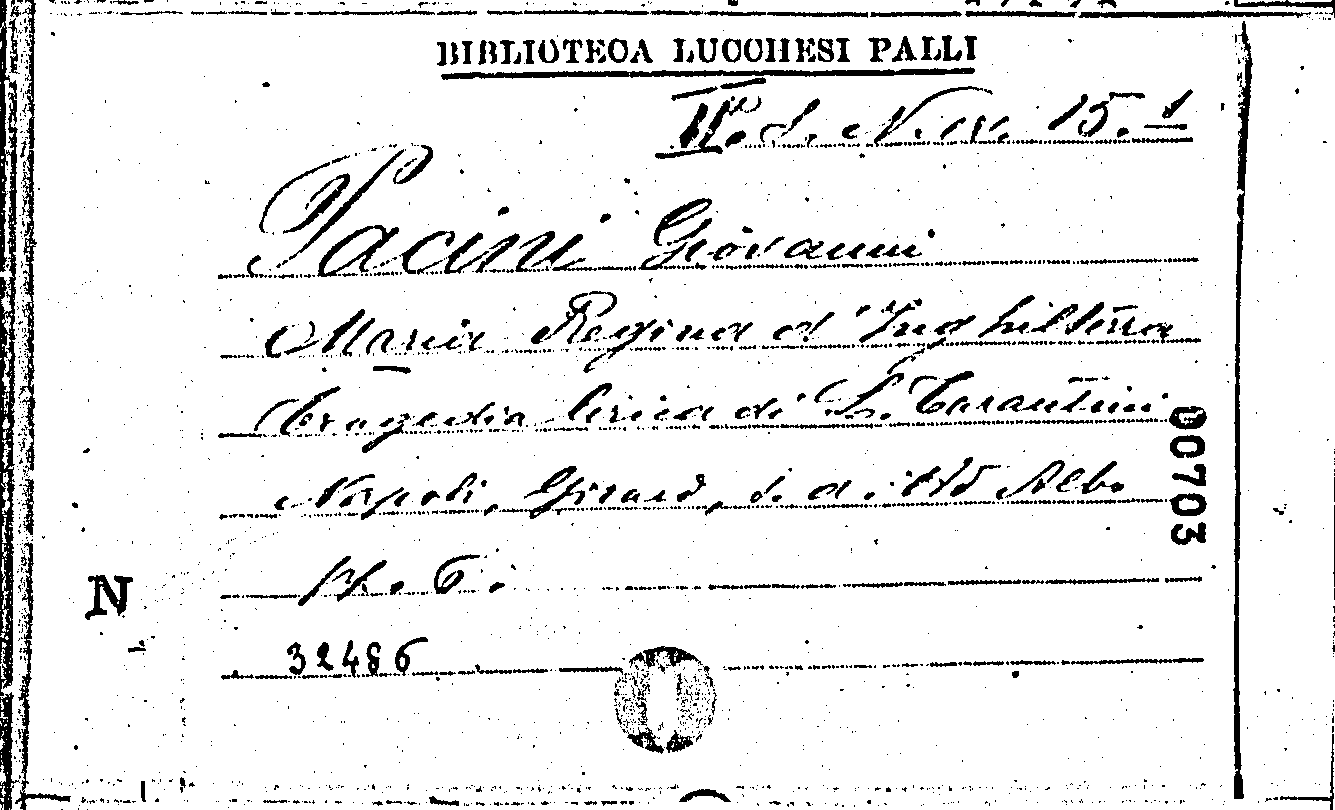 BIBLIOTECA LUCCHESI PALLI
II. S. N. 15. 1
Pacini Giovanni
Maria Regina d'Inghilterra
tragedia lirica di L. Tarantini
Napoli, Girard, s. d. Alb.
N
32486
00703